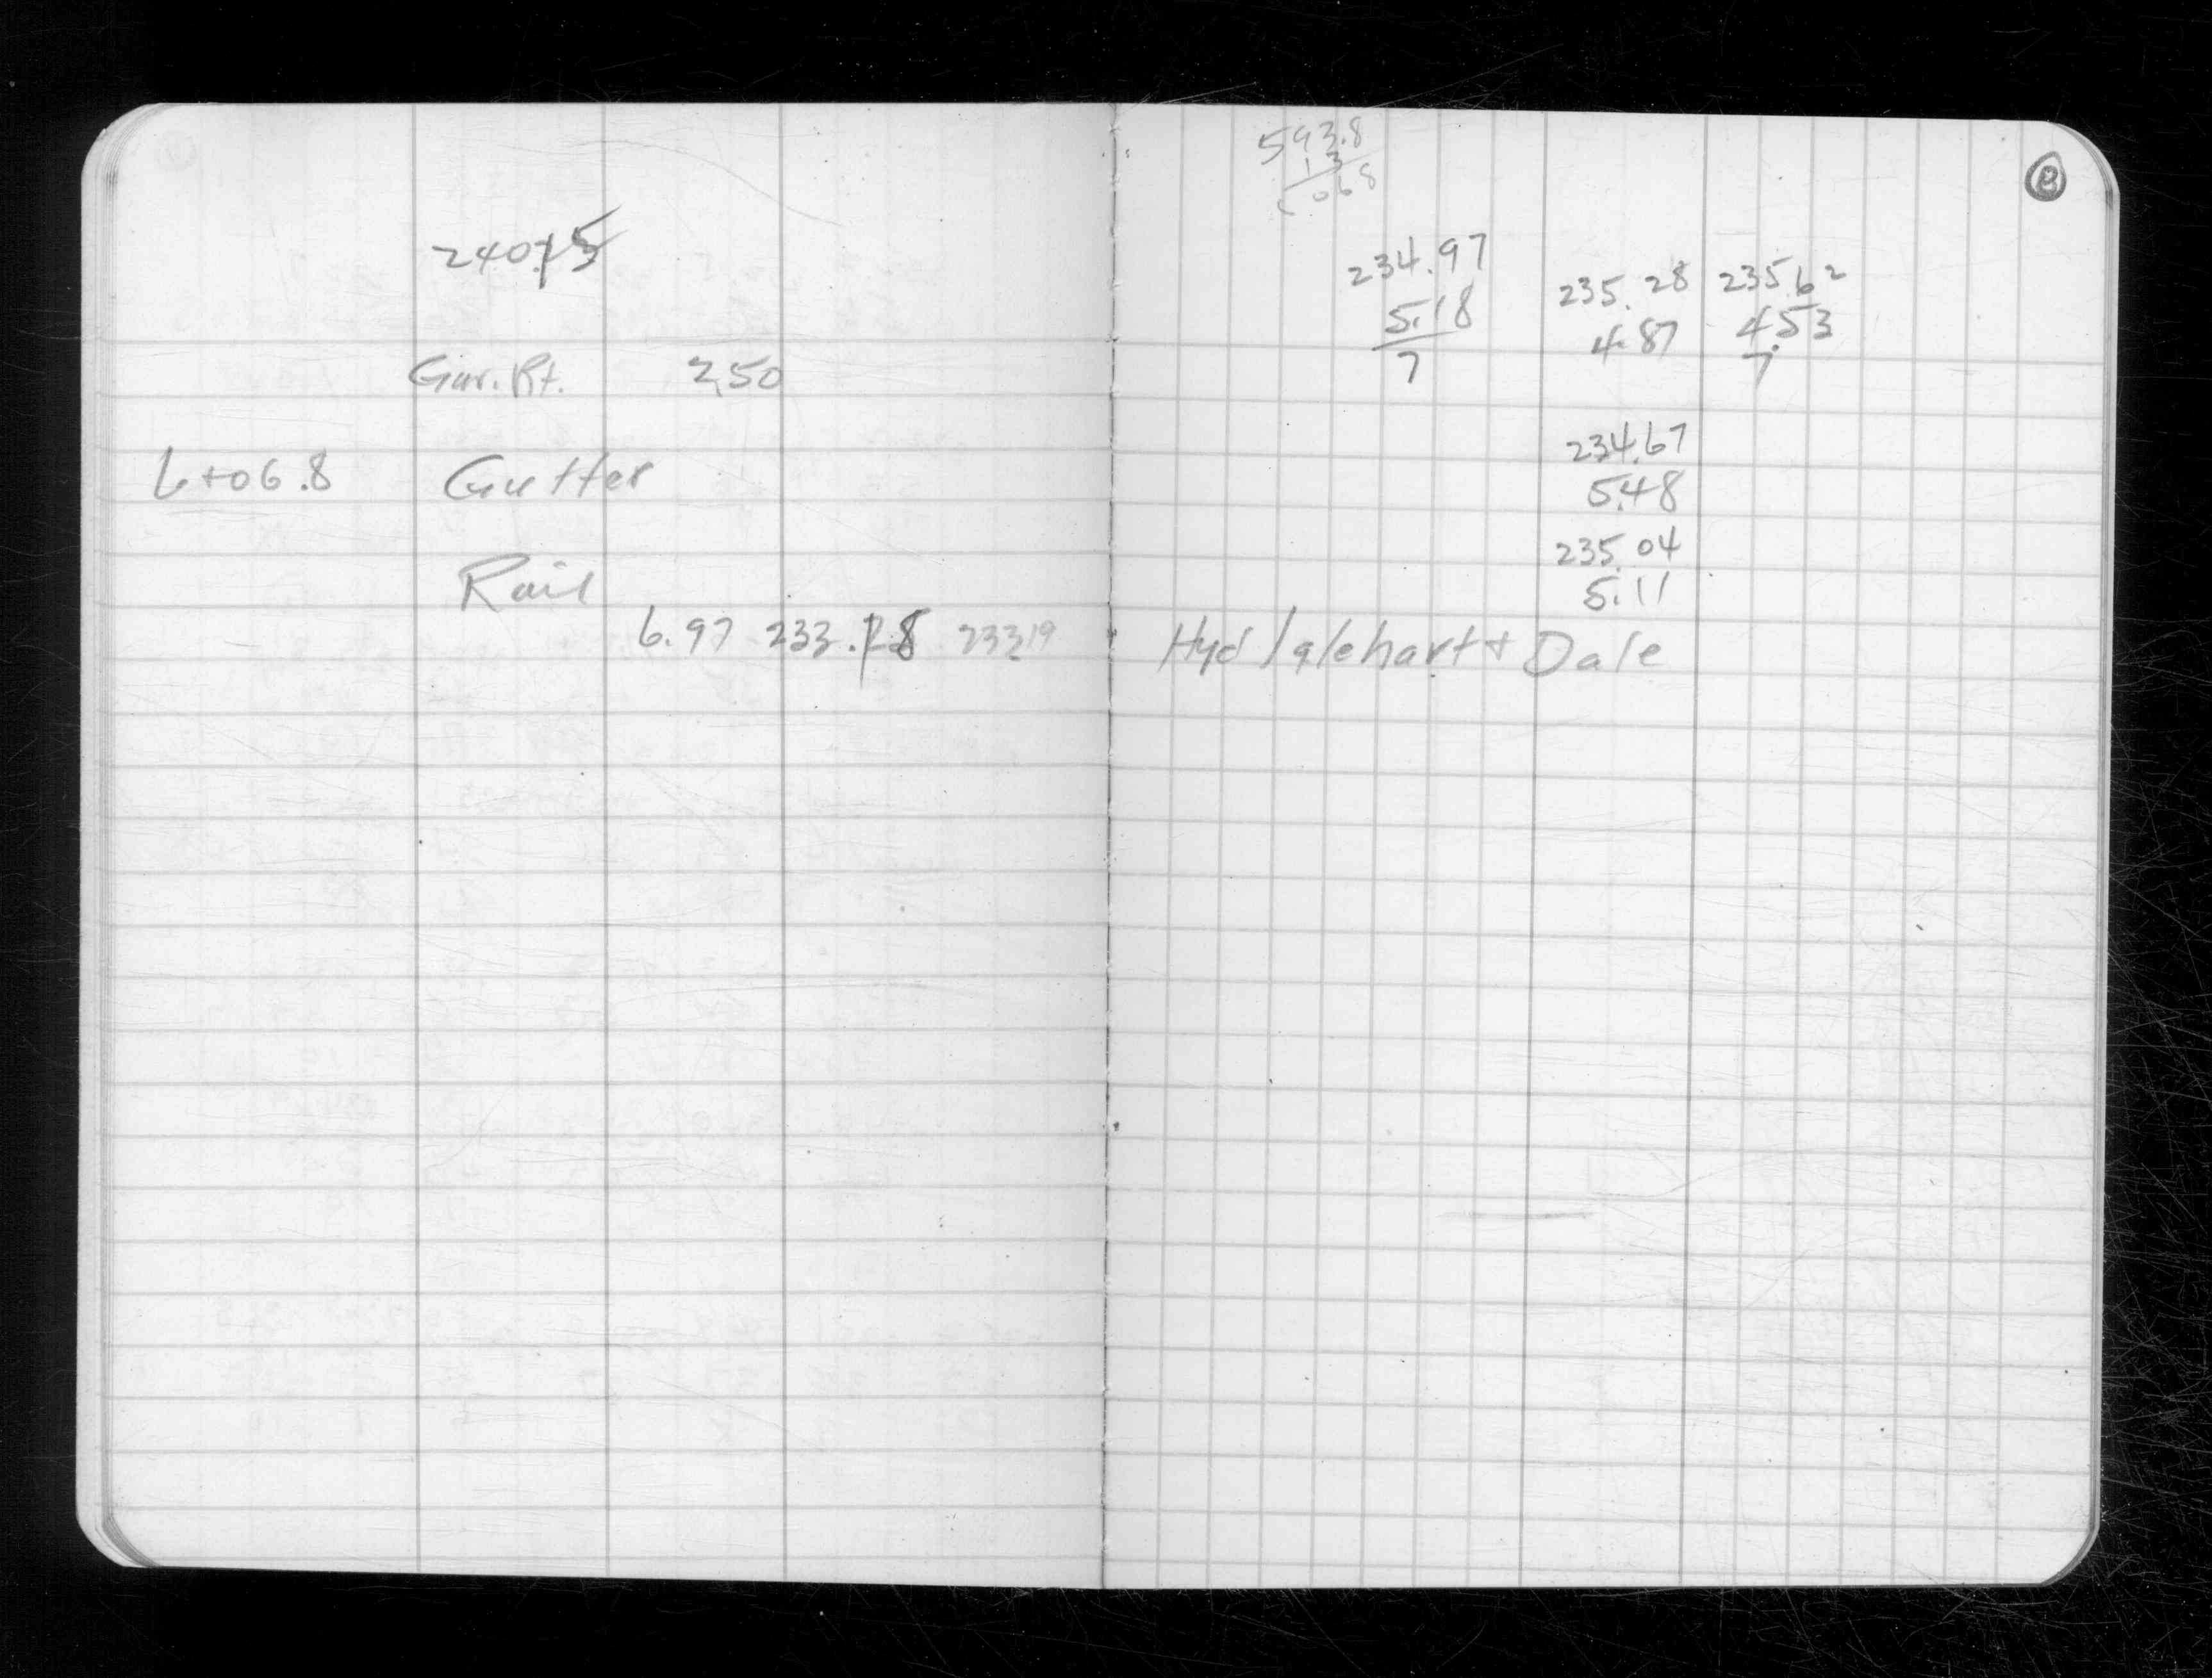 240.15
Gar. Rt. 2.50
6+06.8 Gutter
Rail
6.97 233.18 233.19
593.8
13
6068
8
234.97 235.28 235.62
5.18 4.87 4.53
7 7
234.67
5.48
235.04
5.11
Hyd Iglehart + Dale